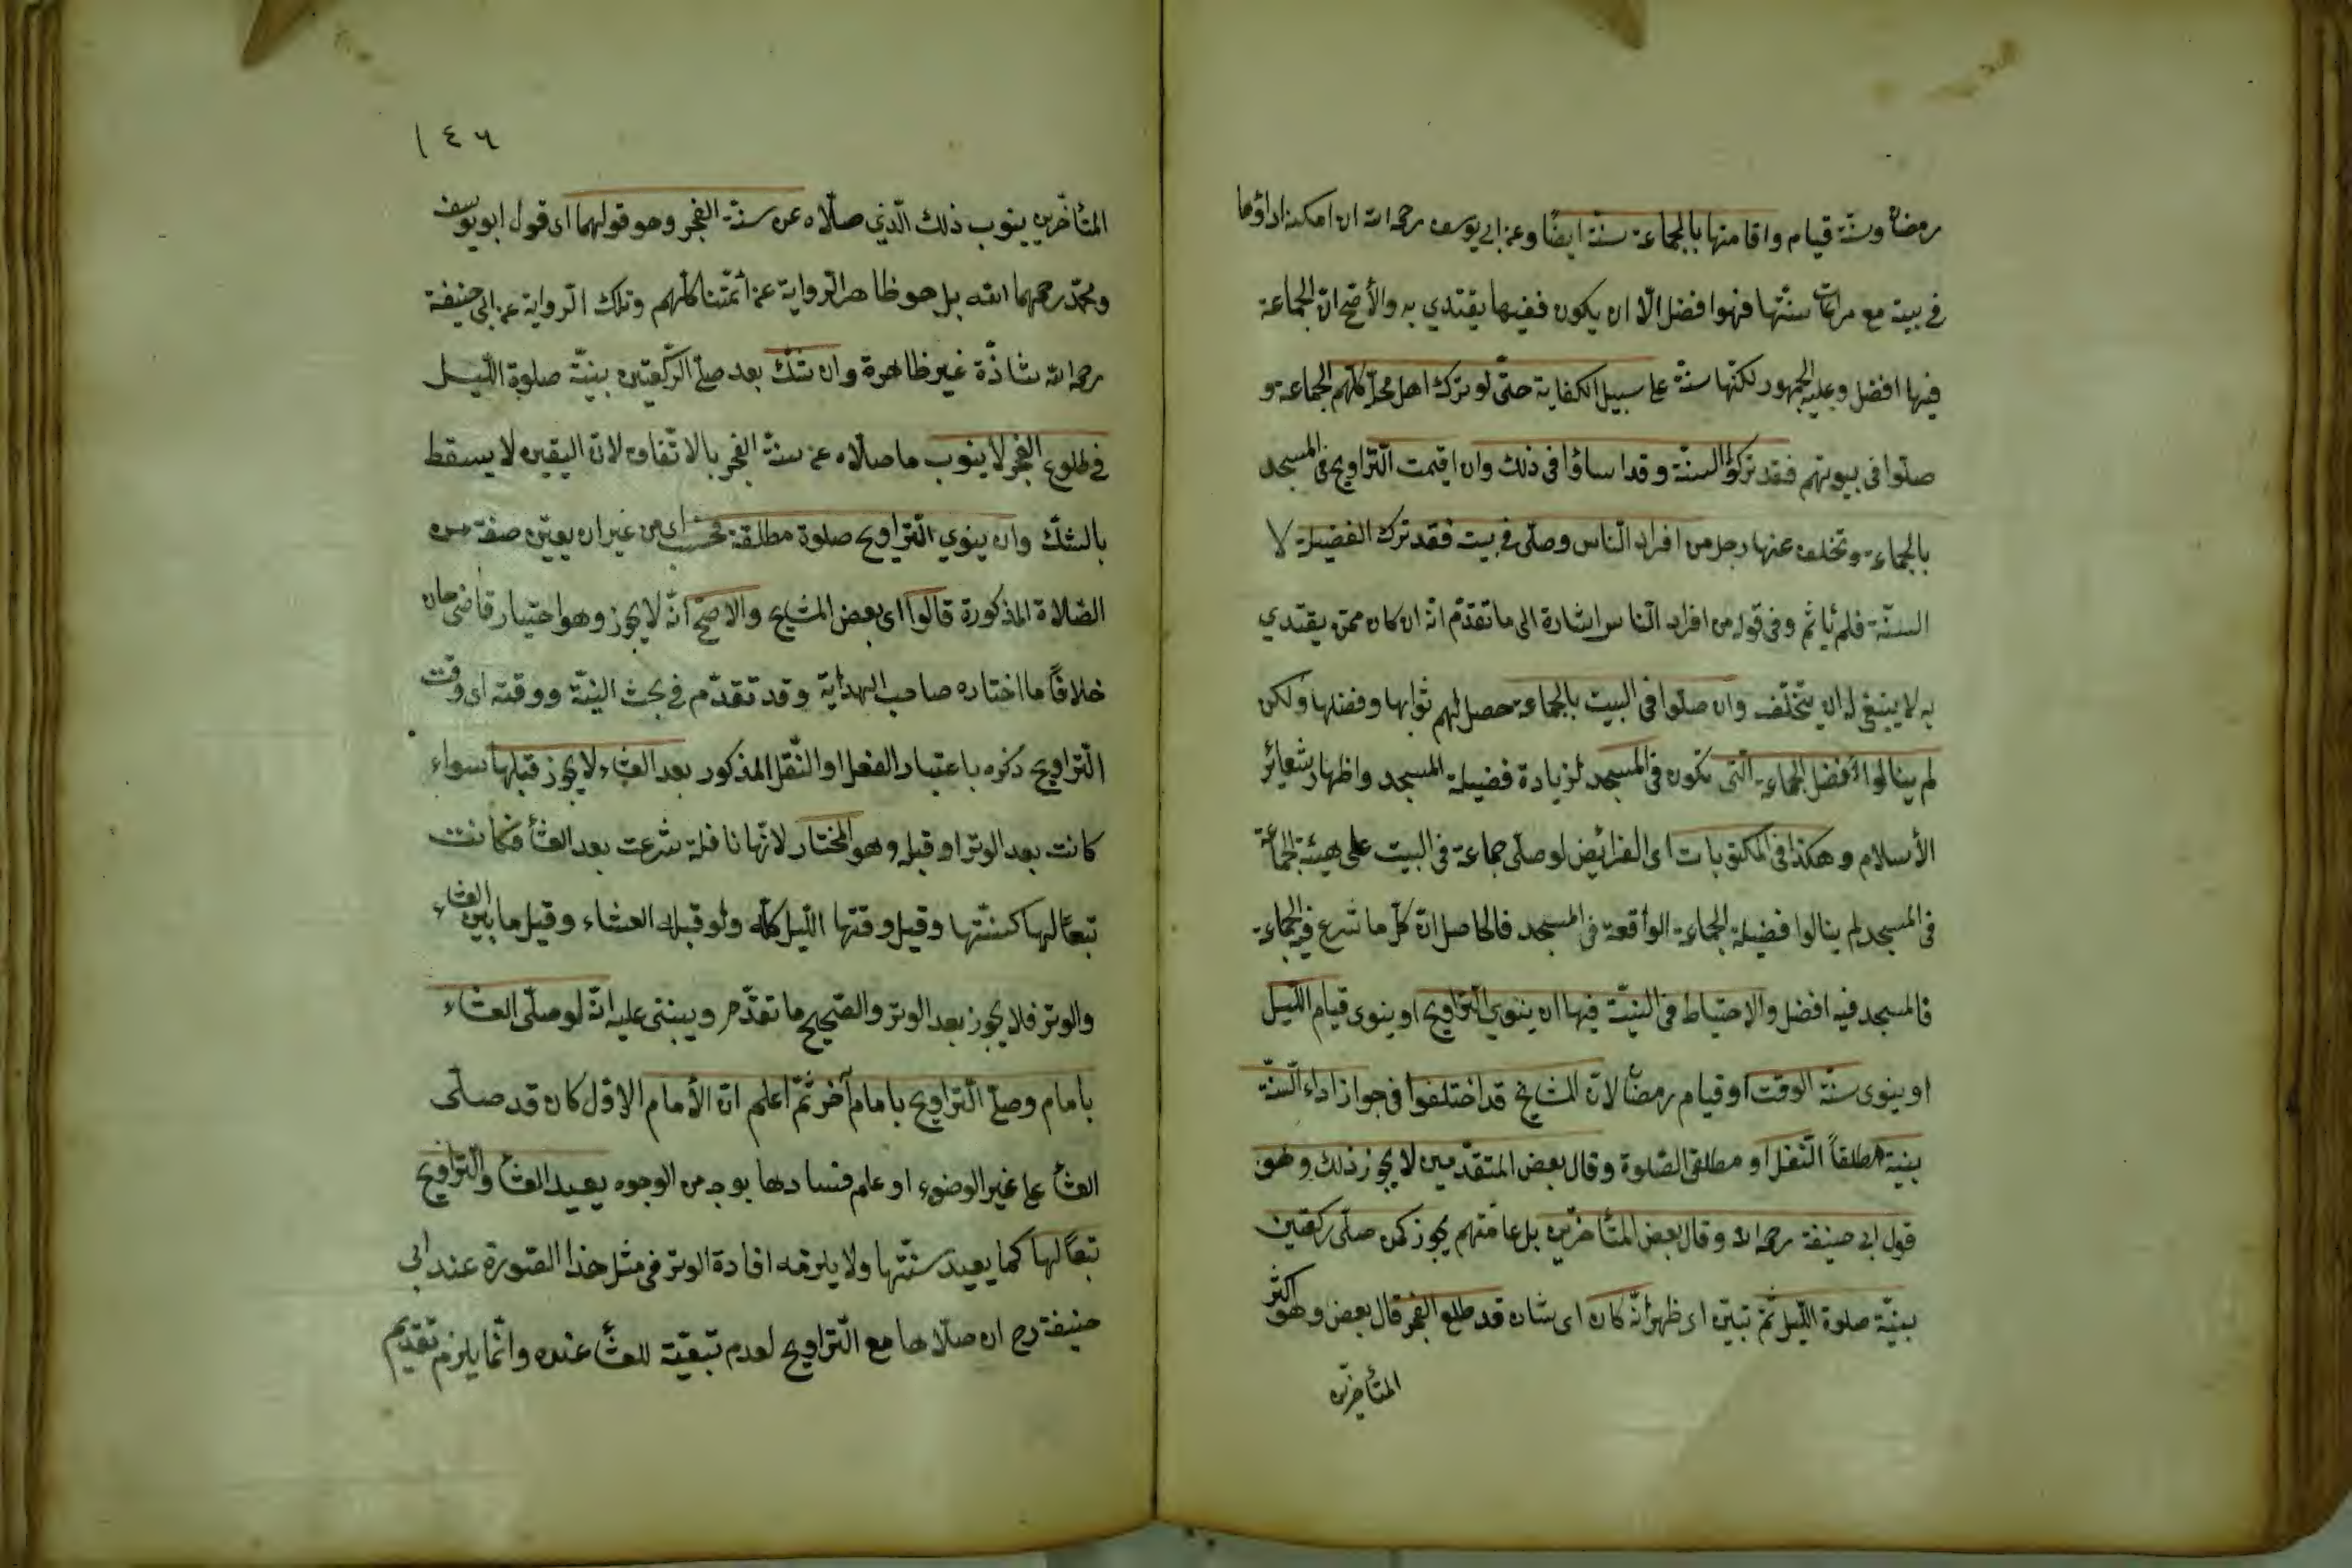 رمضان وسنّة قيام واقامتها بالجماعة سنّة ايضًا وعن ابي يوسف رحمه الله ان امكنه اداؤها
في بيته مع مراعات سنّتها فهوا فضل الّا ان يكون فقيها يقتدي به والأصّح انّ الجماعة
فيها افضل وعليه الجمهور لكنّها سنّة على سبيل الكفاية حتّى لو ترك اهل محلّ كلّهم الجماعة و
صلّوا فى بيوتهم فقد تركوا السنّة وقد اساؤا فى ذلك وان اقيمت التّراويح فى المسجد
بالجماعة وتخلف عنها رجل من افراد النّاس وصلّى فى بيت فقد ترك الفضيلة لا
السنّة فلم يأثم وفى قوله من افراد النّاس اشارة الى ما تقدّم انّه ان كان ممّن يقتدي
به لا ينبغى له ان يتخلّف وان صلّوا فى البيت بالجماعة حصل لهم ثوابها وفضلها ولكن
لم ينالوا أفضل الجماعة الّتى تكون فى المسجد لزيادة فضيلة المسجد واظهار شعائر
الأسلام وهكذا فى المكتوبات اى الفرائض لو صلّى جماعة فى البيت على هيئة الجماعة
فى المسجد لم ينالوا فضيلة الجماعة الواقعة فى المسجد فالحاصل انّ كلّ ما شرع فيه الجماعة
فالمسجد فيه افضل والاحتياط فى النيّة فيها ان ينوي التّراويح او ينوى قيام اللّيل
او ينوى سنّة الوقت او قيام رمضان لانّ المشايخ قد اختلفوا فى جواز اداء السنّة
بنية مطلقاً النّفل او مطلق الصّلوة وقال بعض المتقدّمين لا يجوز ذلك وهو
قول ابى حنيفة رحمه الله وقال بعض المتأخرّين بل عامّتهم يجوز كمن صلّى ركعتين
بنيّة صلوة اللّيل ثمّ تبيّن اى ظهر أنّه كان اى شان قد طلع الفجر قال بعض وهو اكثر
المتأخرّين
١٤٦
المتأخّرين ينوب ذلك الّذي صلّاه عن سنّة الفجر وهو قولهما اى قول ابو يوسف
ومحمّد رحمهما الله بل هو ظاهر الرّواية عن ائمّتنا كلّهم وتلك الرواية عن ابى حنيفة
رحمه الله شاذّة غير ظاهرة وان شكّ بعد صلّى الرّكعتين بنيّة صلوة اللّيل
فى طلوع الفجر لا ينوب ما صلّاه عن سنّة الفجر بالاتّفاق لانّ اليقين لا يسقط
بالشّك وان ينوي التّراويح صلوة مطلقة فحسب اى من غير ان يعيّن صفة من
الصّلاة المذكورة قالوا اى بعض المشايخ والاصّح انّه لا يجوز وهو اختيار قاضى خان
خلافًا ما اختاره صاحب الهداية وقد تقدّم فى بحث النيّة ووقته اى وقت
التّراويح ذكره باعتبار الفعل او النّقل المذكور بعد العشاء لا يجوز قبلها سواء
كانت بعد الوتر او قبله وهو المختار لانّها نافلة شرعت بعد العشأ فكانت
تبعًا لها كسنّتها وقيل وقتها اللّيل كلّه ولو قبل العشاء وقيل ما بين العشاء
والوتر فلا يجوز بعد الوتر والصّحيح ما تقدّم ويبنتى عليه انّه لو صلّى العشاء
بامام وصلّى التّراويح بامام آخر ثمّ اعلم انّ الأمام الاوّل كان قد صلّى
العشأ على غير الوضوء او علم فسادها بوجه من الوجوه يعيد العشأ والتّراويح
تبعًا لها كما يعيد سنّتها ولا يلزمه اعادة الوتر فى مثل هذا الصّورة عند ابى
حنيفة رح ان صلّاها مع التّراويح لعدم تبعيّته للعشأ عنده وانّما يلزم تقديم